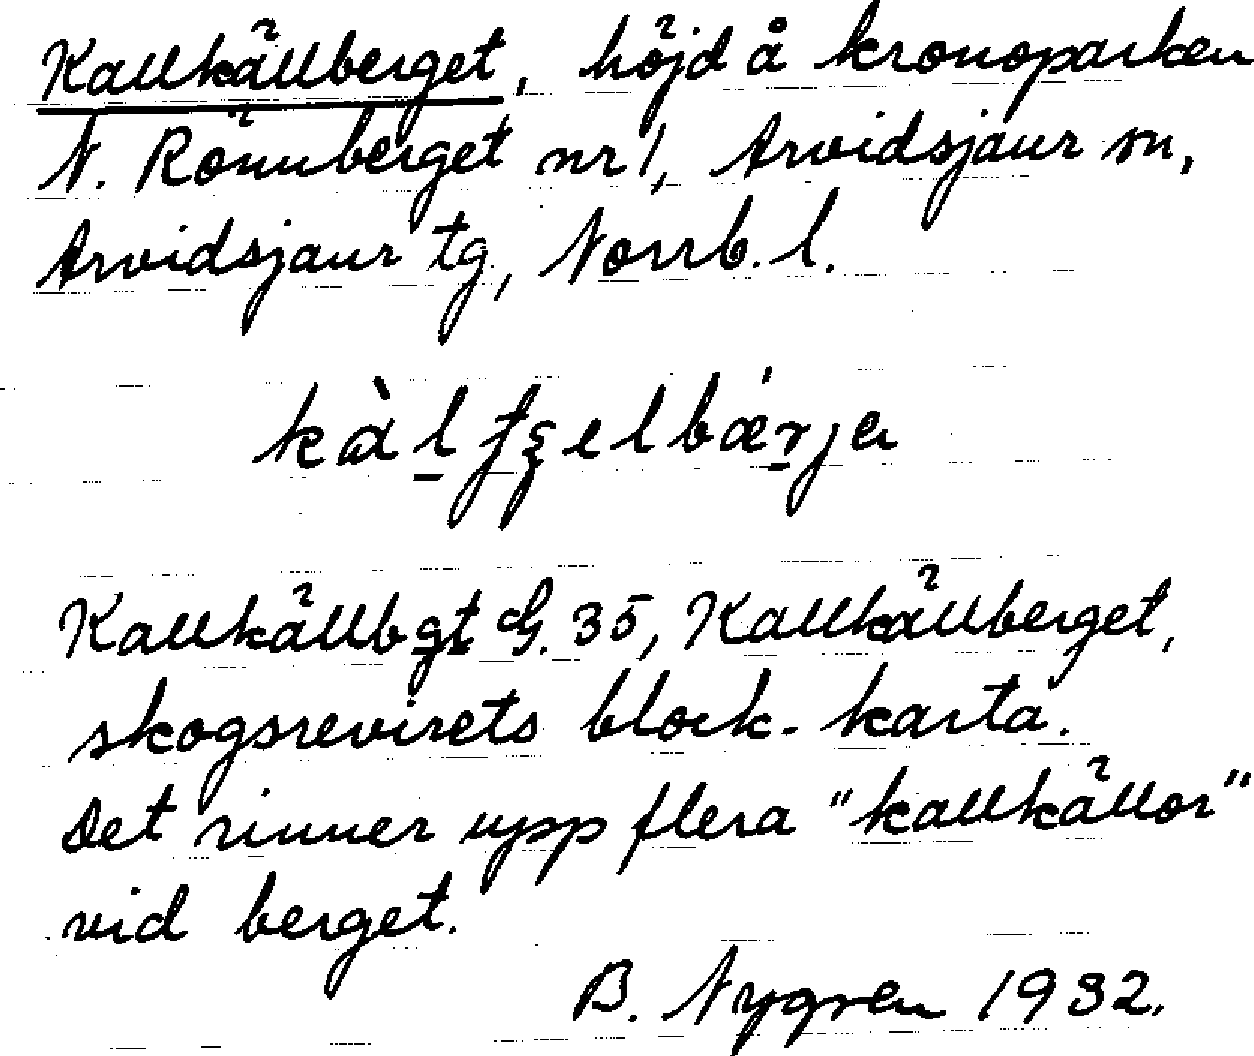 Kallkällberget, höjd å kronoparken
N. Rönnberget nr 1, Arvidsjaur sn,
Arvidsjaur tg, Norrb. l.
Kallkällbgt G. 35, Kallkällberget,
skogsrevirets block-karta.
Det rinner upp flera "kallkällor"
vid berget.
B. Nygren 1932.